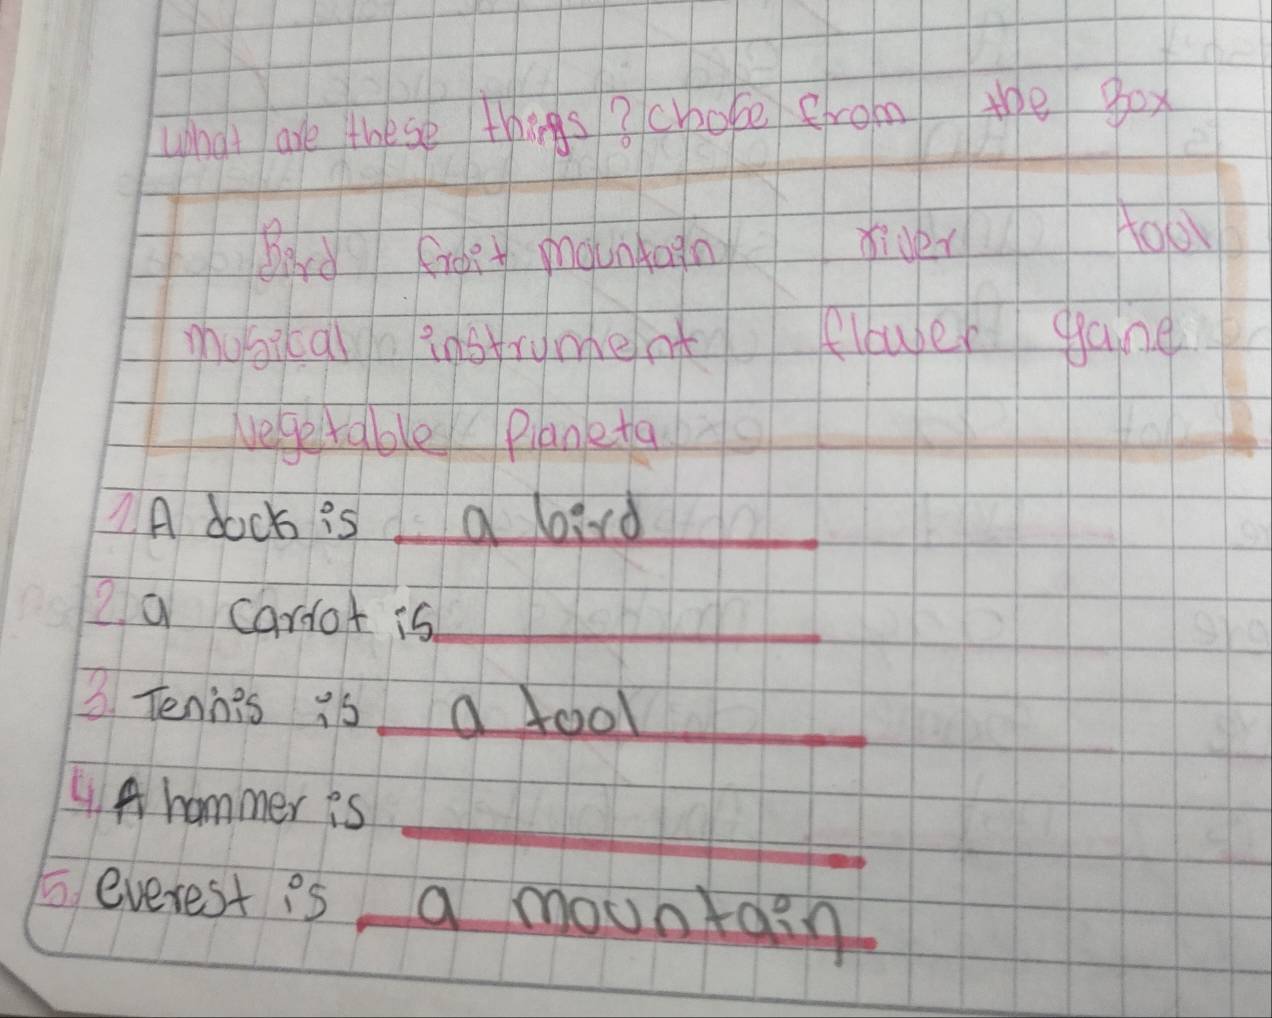 What are these things? chose from the Box
Bird fruit mountain river tool
musical instrument flower gane
vegetable Planeta
1 A duck is a bird
2. a carrot is
3. Tennis is a tool
4. A hammer is
5. everest is a mountain